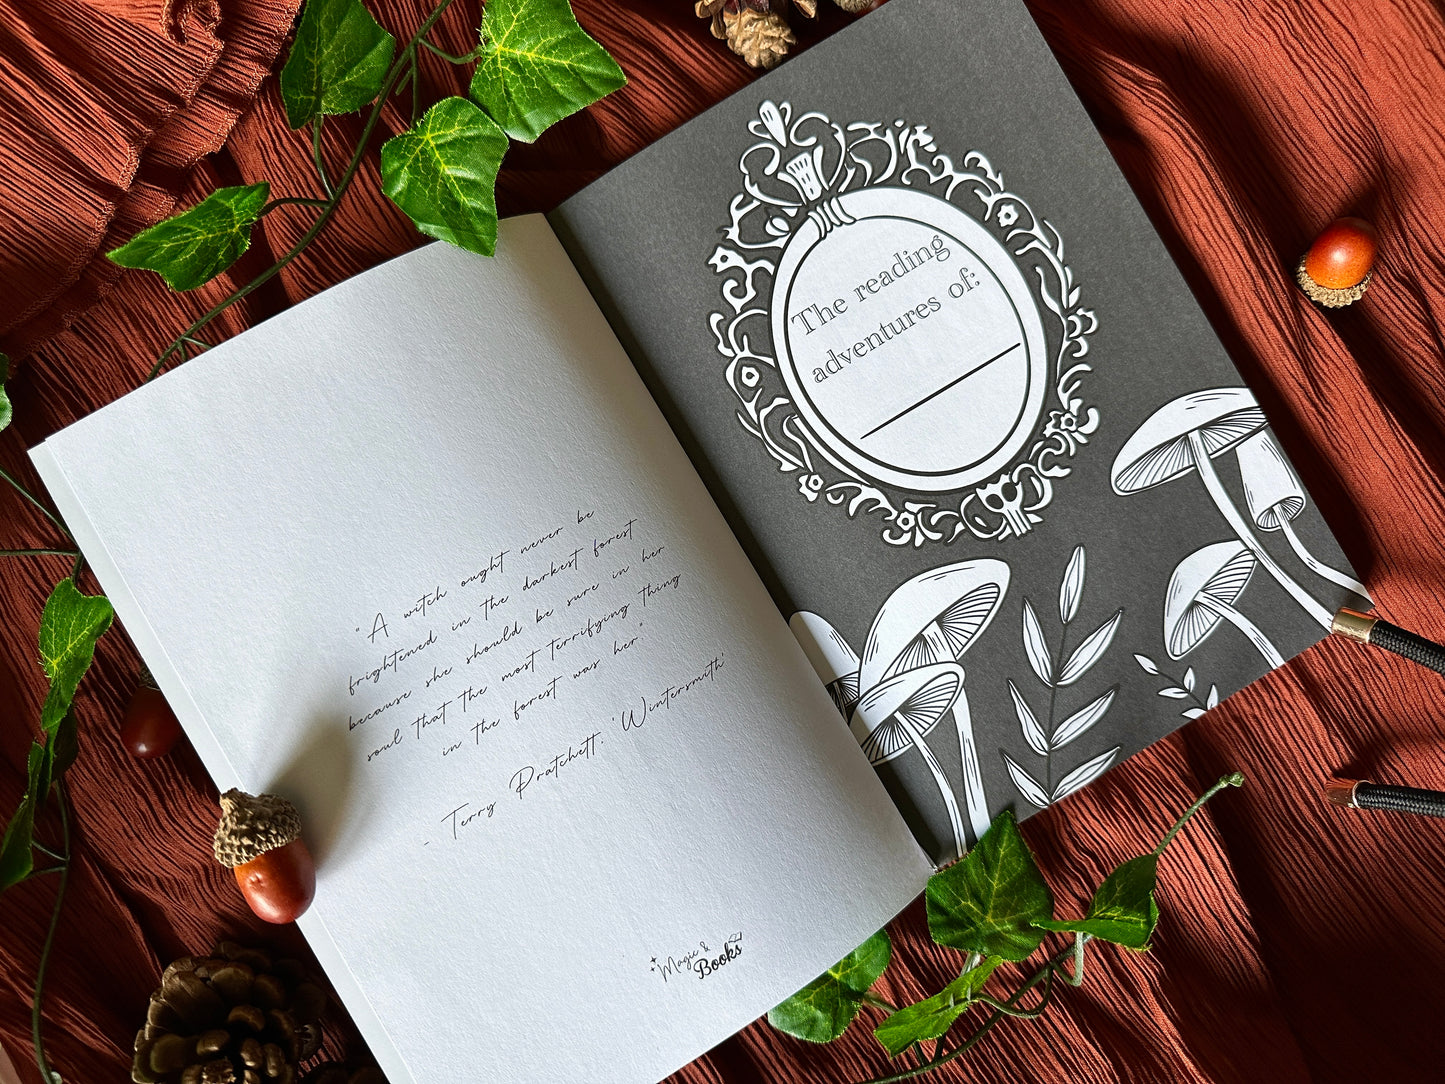 "A witch ought never be
frightened in the darkest forest
because she should be sure in her
soul that the most terrifying thing
in the forest was her."
- Terry Pratchett, 'Wintersmith'
Magic &
Books
The reading
adventures of: